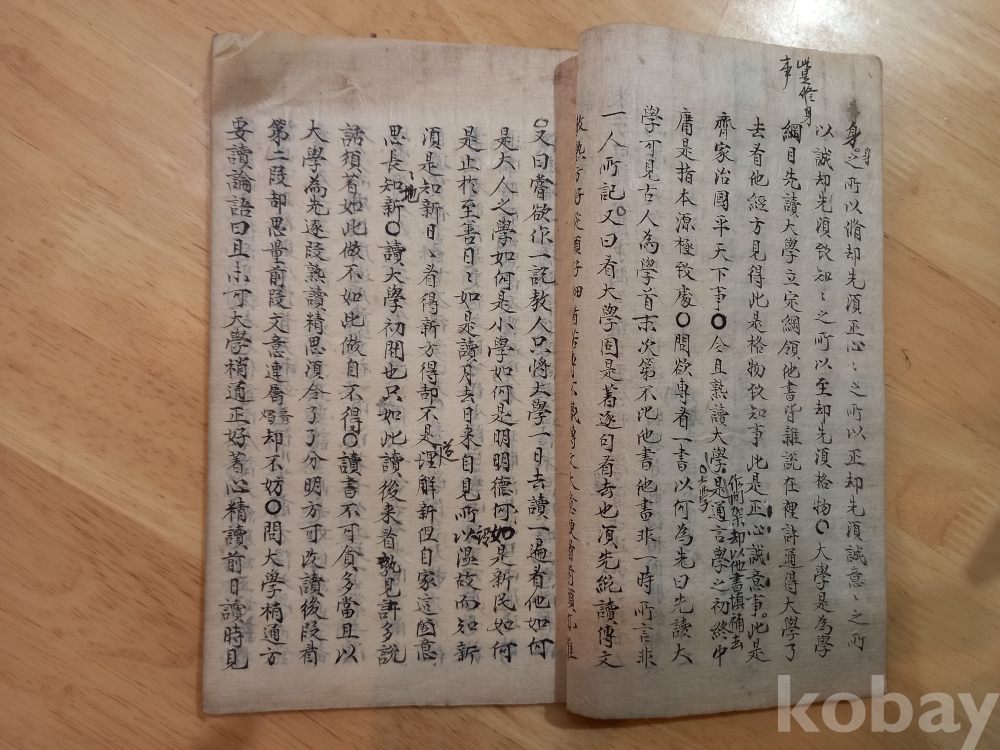 此是修身
事
身之所以脩却先須正心〻之所以正却先須誠意〻之所
身
以誠却先須致知〻之所以至却先須格物〇大學是為學
綱目先讀大學立定綱領他書皆雜說在裡許通得大學了
去看他經方見得此是格物致知事此是正心誠意事此是
齊家治國平天下事〇今且熟讀大學
作間架却以他書填補去
是通言學之初終中
大學
庸是指本源極致處〇問欲專看一書以何為先曰先讀大
學可見古人為學首末次第不比他書他書非一時所言非
一人所記又曰看大學固是著逐句看去也須先統讀傳文
教熟方好從頭仔細看若專不識傳文大意便看前頭亦難
〇又曰嘗欲作一說教人只將大學一日去讀一遍看他如何
是大人之學如何是小學如何是明明德如何是新民如何
是止於至善日〻如是讀月去日來自見所以溫故而知新
須是知新日〻看得新方得却不是
道
理解新但自家這箇意
思長
〻地
新〇讀大學初間也只如此讀後來看熟見許多說
話須著如此做不如此做自不得〇讀書不可貪多當且以
大學為先逐段熟讀精思須令了了分明方可改讀後段看
第二段却思量前段文意連屬
却不妨〇問大學稍通方
要讀論語曰且未可大學稍通正好著心精讀前日讀時見
kobay